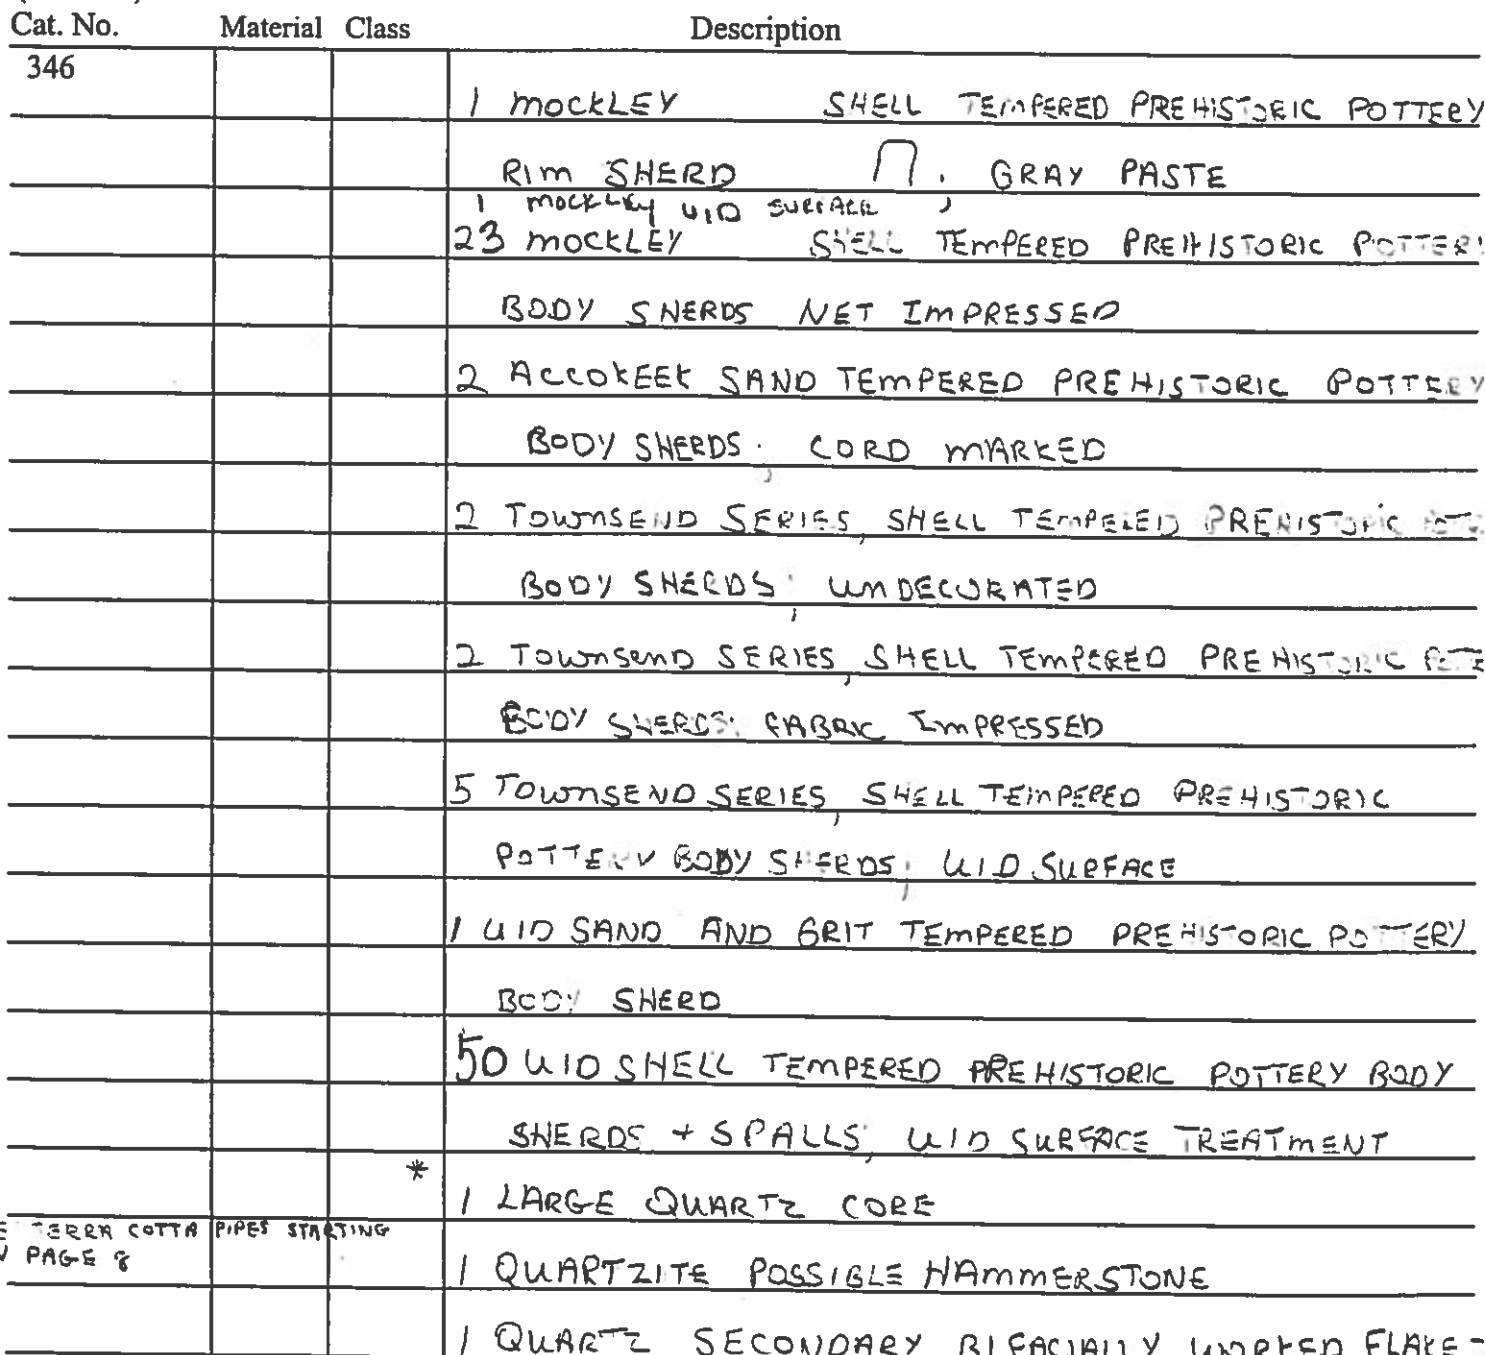 Cat. No. Material Class Description
346
1 MOCKLEY SHELL TEMPERED PREHISTORIC POTTERY
RIM SHERD ; GRAY PASTE
1 MOCKLEY UID SURFACE
23 MOCKLEY SHELL TEMPERED PREHISTORIC POTTERY
BODY SHERDS NET IMPRESSED
2 ACCOKEEK SAND TEMPERED PREHISTORIC POTTERY
BODY SHERDS; CORD MARKED
2 TOWNSEND SERIES, SHELL TEMPERED PREHISTORIC
BODY SHERDS; UNDECORATED
2 TOWNSEND SERIES, SHELL TEMPERED PREHISTORIC
BODY SHERDS; FABRIC IMPRESSED
5 TOWNSEND SERIES, SHELL TEMPERED PREHISTORIC
POTTERY BODY SHERDS; UID SURFACE
1 UID SAND AND GRIT TEMPERED PREHISTORIC POTTERY
BODY SHERD
50 UID SHELL TEMPERED PREHISTORIC POTTERY BODY
SHERDS + SPALLS, UID SURFACE TREATMENT
* 1 LARGE QUARTZ CORE
TERRA COTTA PIPES STARTING
PAGE 8
1 QUARTZITE POSSIBLE HAMMERSTONE
1 QUARTZ SECONDARY BIFACIALLY WORKED FLAKE